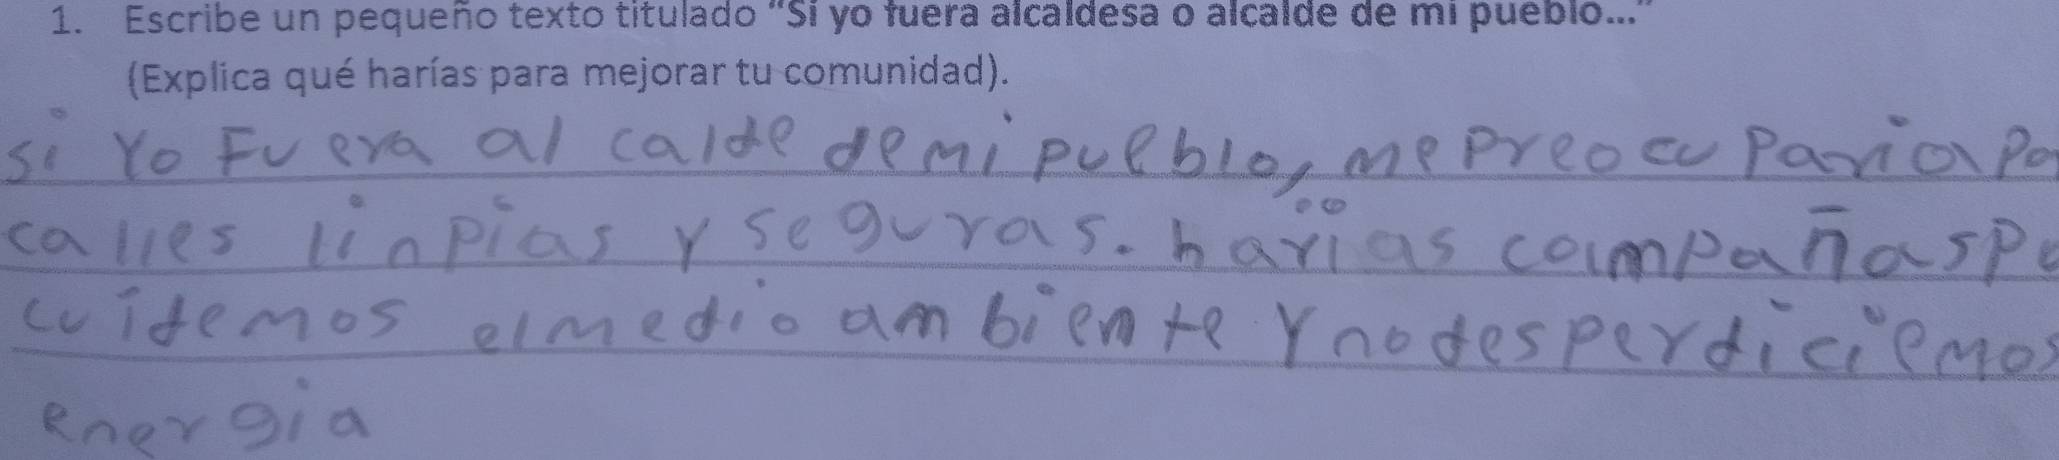 1. Escribe un pequeño texto titulado "Si yo fuera alcaldesa o alcalde de mi pueblo..."
(Explica qué harías para mejorar tu comunidad).
si Yo Fuera al calde demi pueblo, me Preocu Paria Po
calles linpias y seguras. harias campañas po
cuidemos elmedio am biente Y nodesperdiciemos
energia